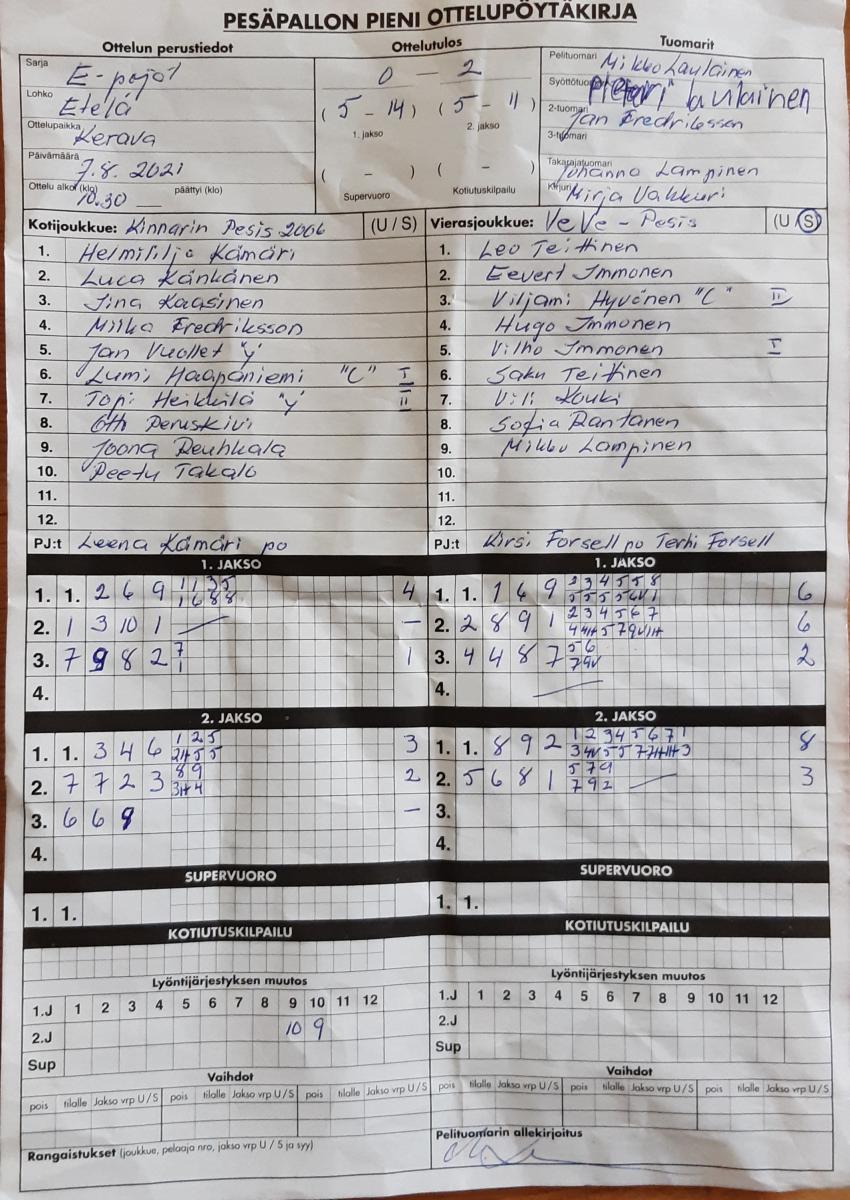 PESÄPALLON PIENI OTTELUPÖYTÄKIRJA
Ottelun perustiedot
Ottelutulos
Tuomarit
Sarja E-pojat
Lohko Etelä
Ottelupaikka Kerava
Päivämäärä 7.8. 2021
Ottelu alkoi (klo) 10.30 päättyi (klo)
0 – 2
(5 – 14) (5 – 11)
1. jakso 2. jakso
( – ) ( – )
Supervuoro Kotiutuskilpailu
Pelituomari Mikko Laulainen
Syöttötuomari Pietari Laulainen
2-tuomari Jan Fredriksson
3-tuomari
Takarajatuomari Johanna Lampinen
Kirjuri Mirja Vakkuri
Kotijoukkue: Kinnarin Pesis 2006 (U / S)
1. Helmililja Kämäri
2. Luca Känkänen
3. Jina Kaasinen
4. Miika Fredriksson
5. Jan Vuollet "y"
6. Lumi Haapaniemi "C" I
7. Topi Heikkilä "y" II
8. Otti Peruskivi
9. Joona Reuhkala
10. Peetu Takalo
11.
12.
PJ:t Leena Kämäri po
Vierasjoukkue: VeVe - Pesis (U / S)
1. Leo Teittinen
2. Eevert Immonen
3. Viljami Hyvönen "C" II
4. Hugo Immonen
5. Vilho Immonen I
6. Saku Teittinen
7. Vili Kouki
8. Sofia Rantanen
9. Mikko Lampinen
10.
11.
12.
PJ:t Kirsi Forsell po Terhi Forsell
1. JAKSO
1. 1. 2 6 9 4
2. 1 3 10 1 –
3. 7 9 8 2 7 1 1
4.
1. JAKSO
1. 1. 1 6 9 2 3 4 5 5 8 6
2. 2 8 9 1 2 3 4 5 6 7 6
3. 4 4 8 7 5 6 2
4.
2. JAKSO
1. 1. 3 4 6 1 2 5 3
2. 7 7 2 3 8 9 2
3. 6 6 9 –
4.
2. JAKSO
1. 1. 8 9 2 1 2 3 4 5 6 7 1 8
2. 5 6 8 1 5 7 9 7 9 2 3
3.
4.
SUPERVUORO
1. 1.
SUPERVUORO
1. 1.
KOTIUTUSKILPAILU
KOTIUTUSKILPAILU
Lyöntijärjestyksen muutos
1.J 1 2 3 4 5 6 7 8 9 10 11 12
2.J 10 9
Sup
Lyöntijärjestyksen muutos
1.J 1 2 3 4 5 6 7 8 9 10 11 12
2.J
Sup
Vaihdot
pois tilalle Jakso vrp U / S pois tilalle Jakso vrp U / S pois tilalle Jakso vrp U / S
Vaihdot
pois tilalle Jakso vrp U / S pois tilalle Jakso vrp U / S pois tilalle Jakso vrp U / S
Rangaistukset (joukkue, pelaaja nro, jakso vrp U / S ja syy)
Pelituomarin allekirjoitus